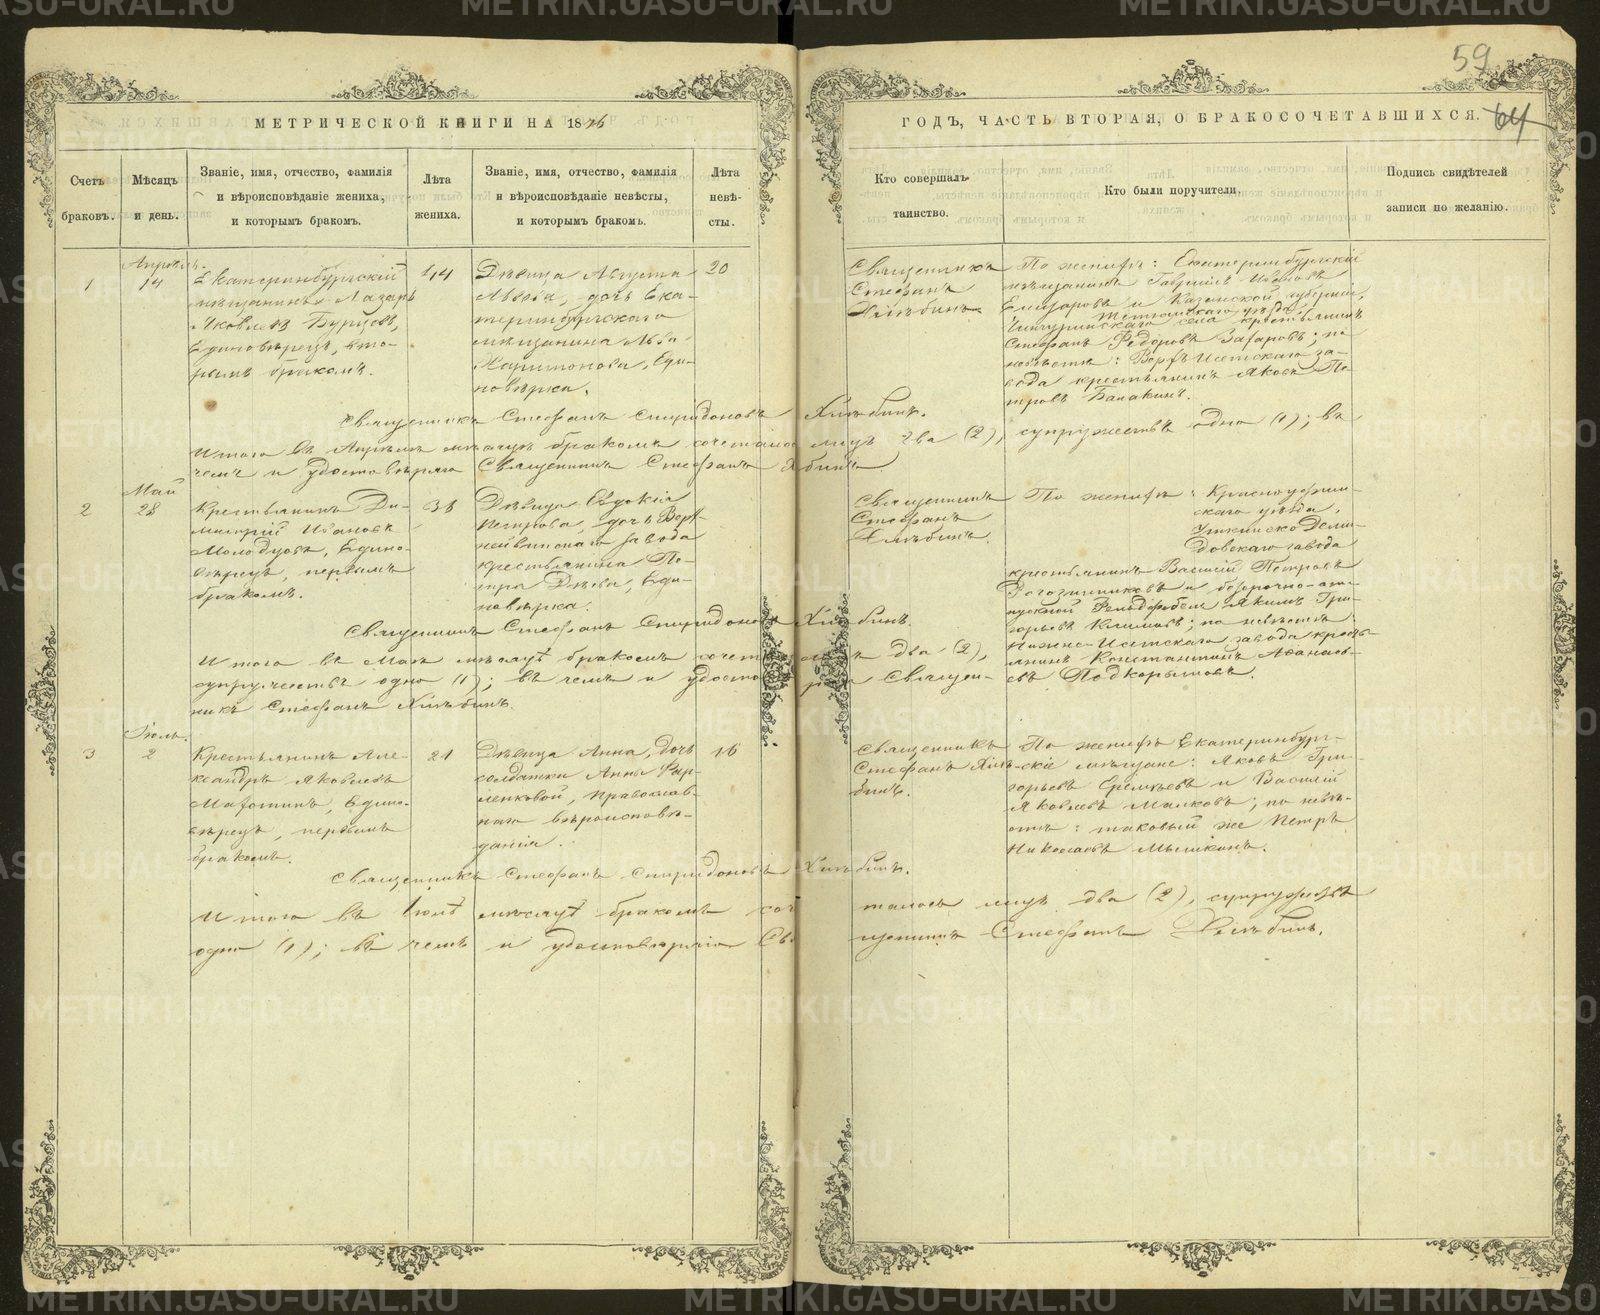 59
64
МЕТРИЧЕСКОЙ КНИГИ НА 1876
ГОДЪ, ЧАСТЬ ВТОРАЯ, О БРАКОСОЧЕТАВШИХСЯ.
Счетъ браковъ.
Мѣсяцъ и день.
Званіе, имя, отчество, фамилія и вѣроисповѣданіе жениха, и которымъ бракомъ.
Лѣта жениха.
Званіе, имя, отчество, фамилія и вѣроисповѣданіе невѣсты, и которымъ бракомъ.
Лѣта невѣсты.
Кто совершалъ таинство.
Кто были поручители.
Подпись свидѣтелей записи по желанію.
1
Апрѣль.
14
Екатеринбургскій
мѣщанинъ Лазарь
Яковлевъ Бурцовъ,
Единовѣрецъ, вто-
рымъ бракомъ.
44
Дѣвица Августа
Львова, дочь Ека-
теринбургскаго
мѣщанина Льва
Харитонова, Еди-
новѣрка.
20
Священникъ
Стефанъ
Хлѣбинъ
По женихѣ: Екатеринбургскій
мѣщанинъ Гавріилъ Ивановъ
Елизаровъ и Казанской губерніи,
уѣзда
села крестьянинъ
Стефанъ Федоровъ Захаровъ; по
невѣстѣ: Верхъ-Исетскаго за-
вода крестьянинъ Яковъ Пе-
тровъ Балакинъ.
Священникъ Стефанъ Спиридоновъ Хлѣбинъ.
Итого въ Апрѣлѣ мѣсяцѣ бракомъ сочеталось лицъ два (2), супружествъ одно (1); въ
чемъ и удостовѣряю Священникъ Стефанъ Хлѣбинъ
2
Май
28
Крестьянинъ Ди-
митрій Ивановъ
Молодцовъ, Едино-
вѣрецъ, первымъ
бракомъ.
38
Дѣвица Евдокія
Петрова, дочь Верх-
нейвинскаго завода
крестьянина Пе-
тра Дѣева, Еди-
новѣрка.
Священникъ
Стефанъ
Хлѣбинъ.
По женихѣ: Красноуфим-
скаго уѣзда,
Уткинско-Деми-
довскаго завода
крестьянинъ Василій Петровъ
Рогозинниковъ и безсрочно-от-
пускной Фельдфебель Якимъ Гри-
горьевъ Климовъ; по невѣстѣ:
Нижне-Исетскаго завода кресть-
янинъ Константинъ Аѳанась-
евъ Подкорытовъ.
Священникъ Стефанъ Спиридоновъ Хлѣбинъ.
Итого въ Маѣ мѣсяцѣ бракомъ сочеталось лицъ два (2),
супружествъ одно (1); въ чемъ и удостовѣряю Священ-
никъ Стефанъ Хлѣбинъ.
3
Іюль.
2
Крестьянинъ Але-
ксандръ Яковлевъ
Махотинъ, Едино-
вѣрецъ, первымъ
бракомъ.
21
Дѣвица Анна, дочь
солдатки Анны
Православ-
наго вѣроисповѣ-
данія.
16
Священникъ
Стефанъ Хлѣ-
бинъ.
По женихѣ Екатеринбург-
скіе мѣщане: Яковъ Гри-
горьевъ Еремѣевъ и Василій
Яковлевъ Малковъ; по невѣ-
стѣ: таковый же Петръ
Николаевъ Мыликинъ.
Священникъ Стефанъ Спиридоновъ Хлѣбинъ.
Итого въ Іюлѣ мѣсяцѣ бракомъ соче талось лицъ два (2), супружествъ
одно (1); въ чемъ и удостовѣряю Священникъ Стефанъ Хлѣбинъ.
METRIKI.GASO-URAL.RU